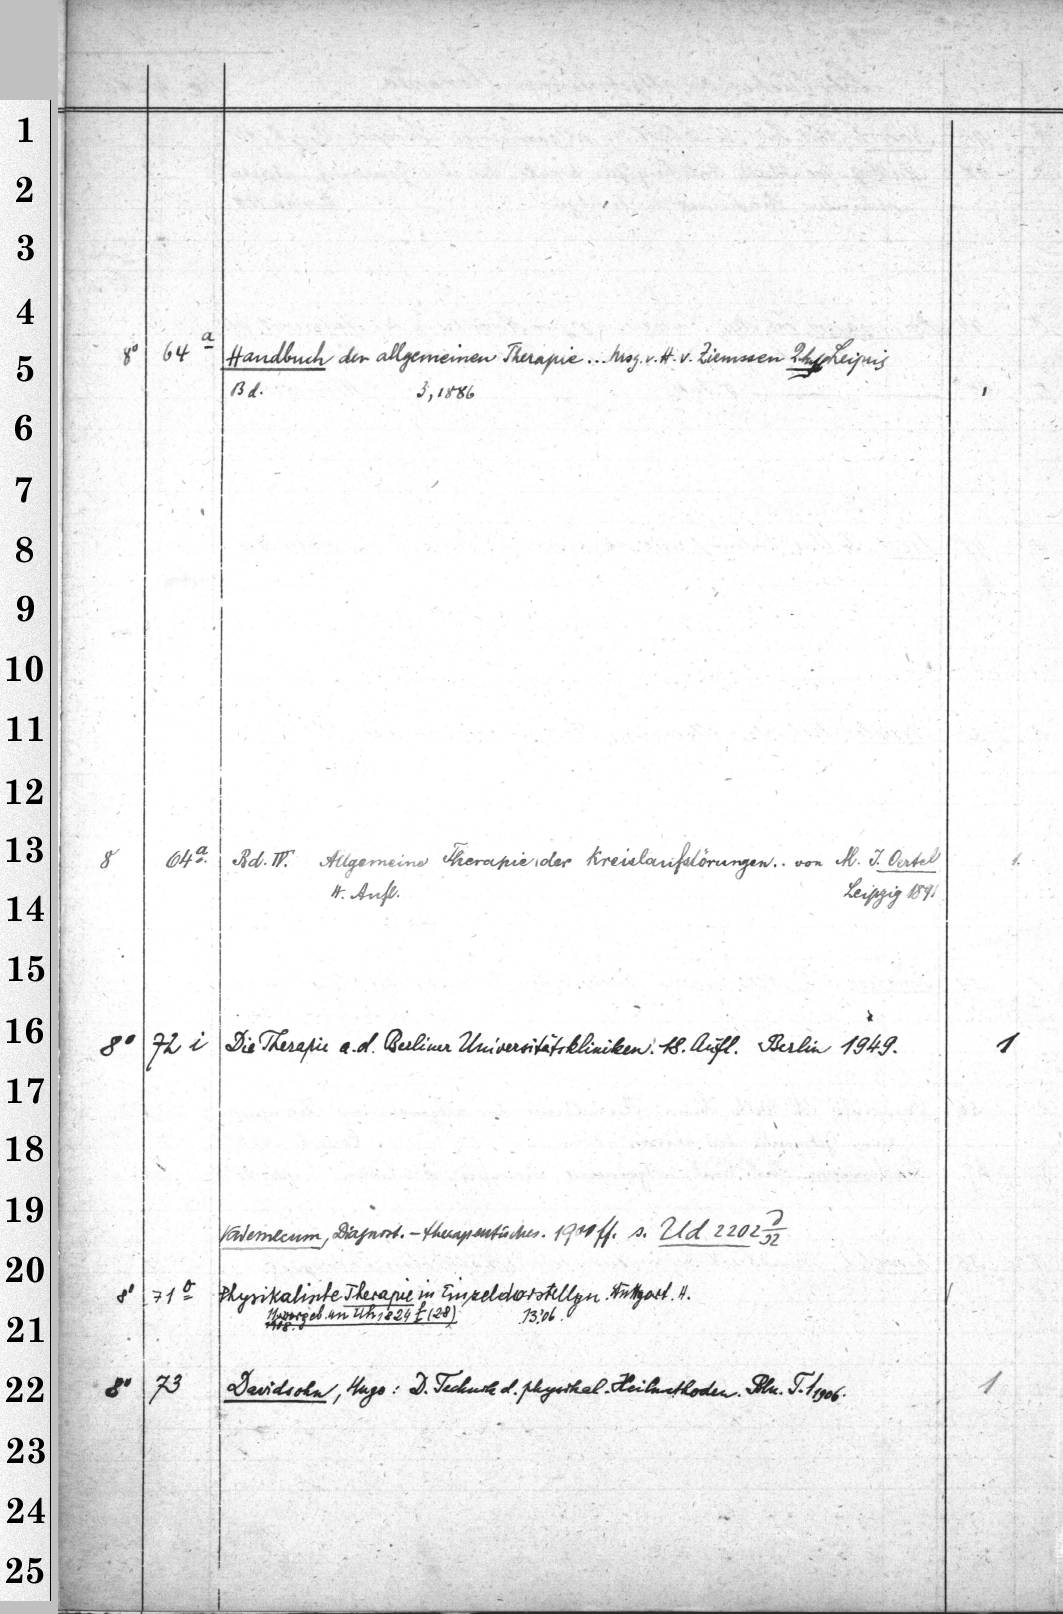 1
2
3
4
8° 64 a Handbuch der allgemeinen Therapie... hrsg. v. H. v. Ziemssen Leipzig
5
Bd. 3, 1886 1
6
7
8
9
10
11
12
13
8 64 a. Bd. IV. Allgemeine Therapie der Kreislaufstörungen.. von M. J. Oertel 1.
4. Aufl. Leipzig 1891
14
15
16
8° 72 i Die Therapie a. d. Berliner Universitätskliniken. 18. Aufl. Berlin 1949. 1
17
18
19
Vademecum, Diagnost.-therapeutisches. ff. s. Ud 2202
20
8° 71 Physikalische Therapie in Einzeldarstellgn. Stuttgart. H.
Uh 1824 t (28) 13.'06.
21
22
8° 73 Davidsohn, Hugo: D. Technik d. physikal. Heilmethoden. Bln. T. 1 1906. 1
23
24
25